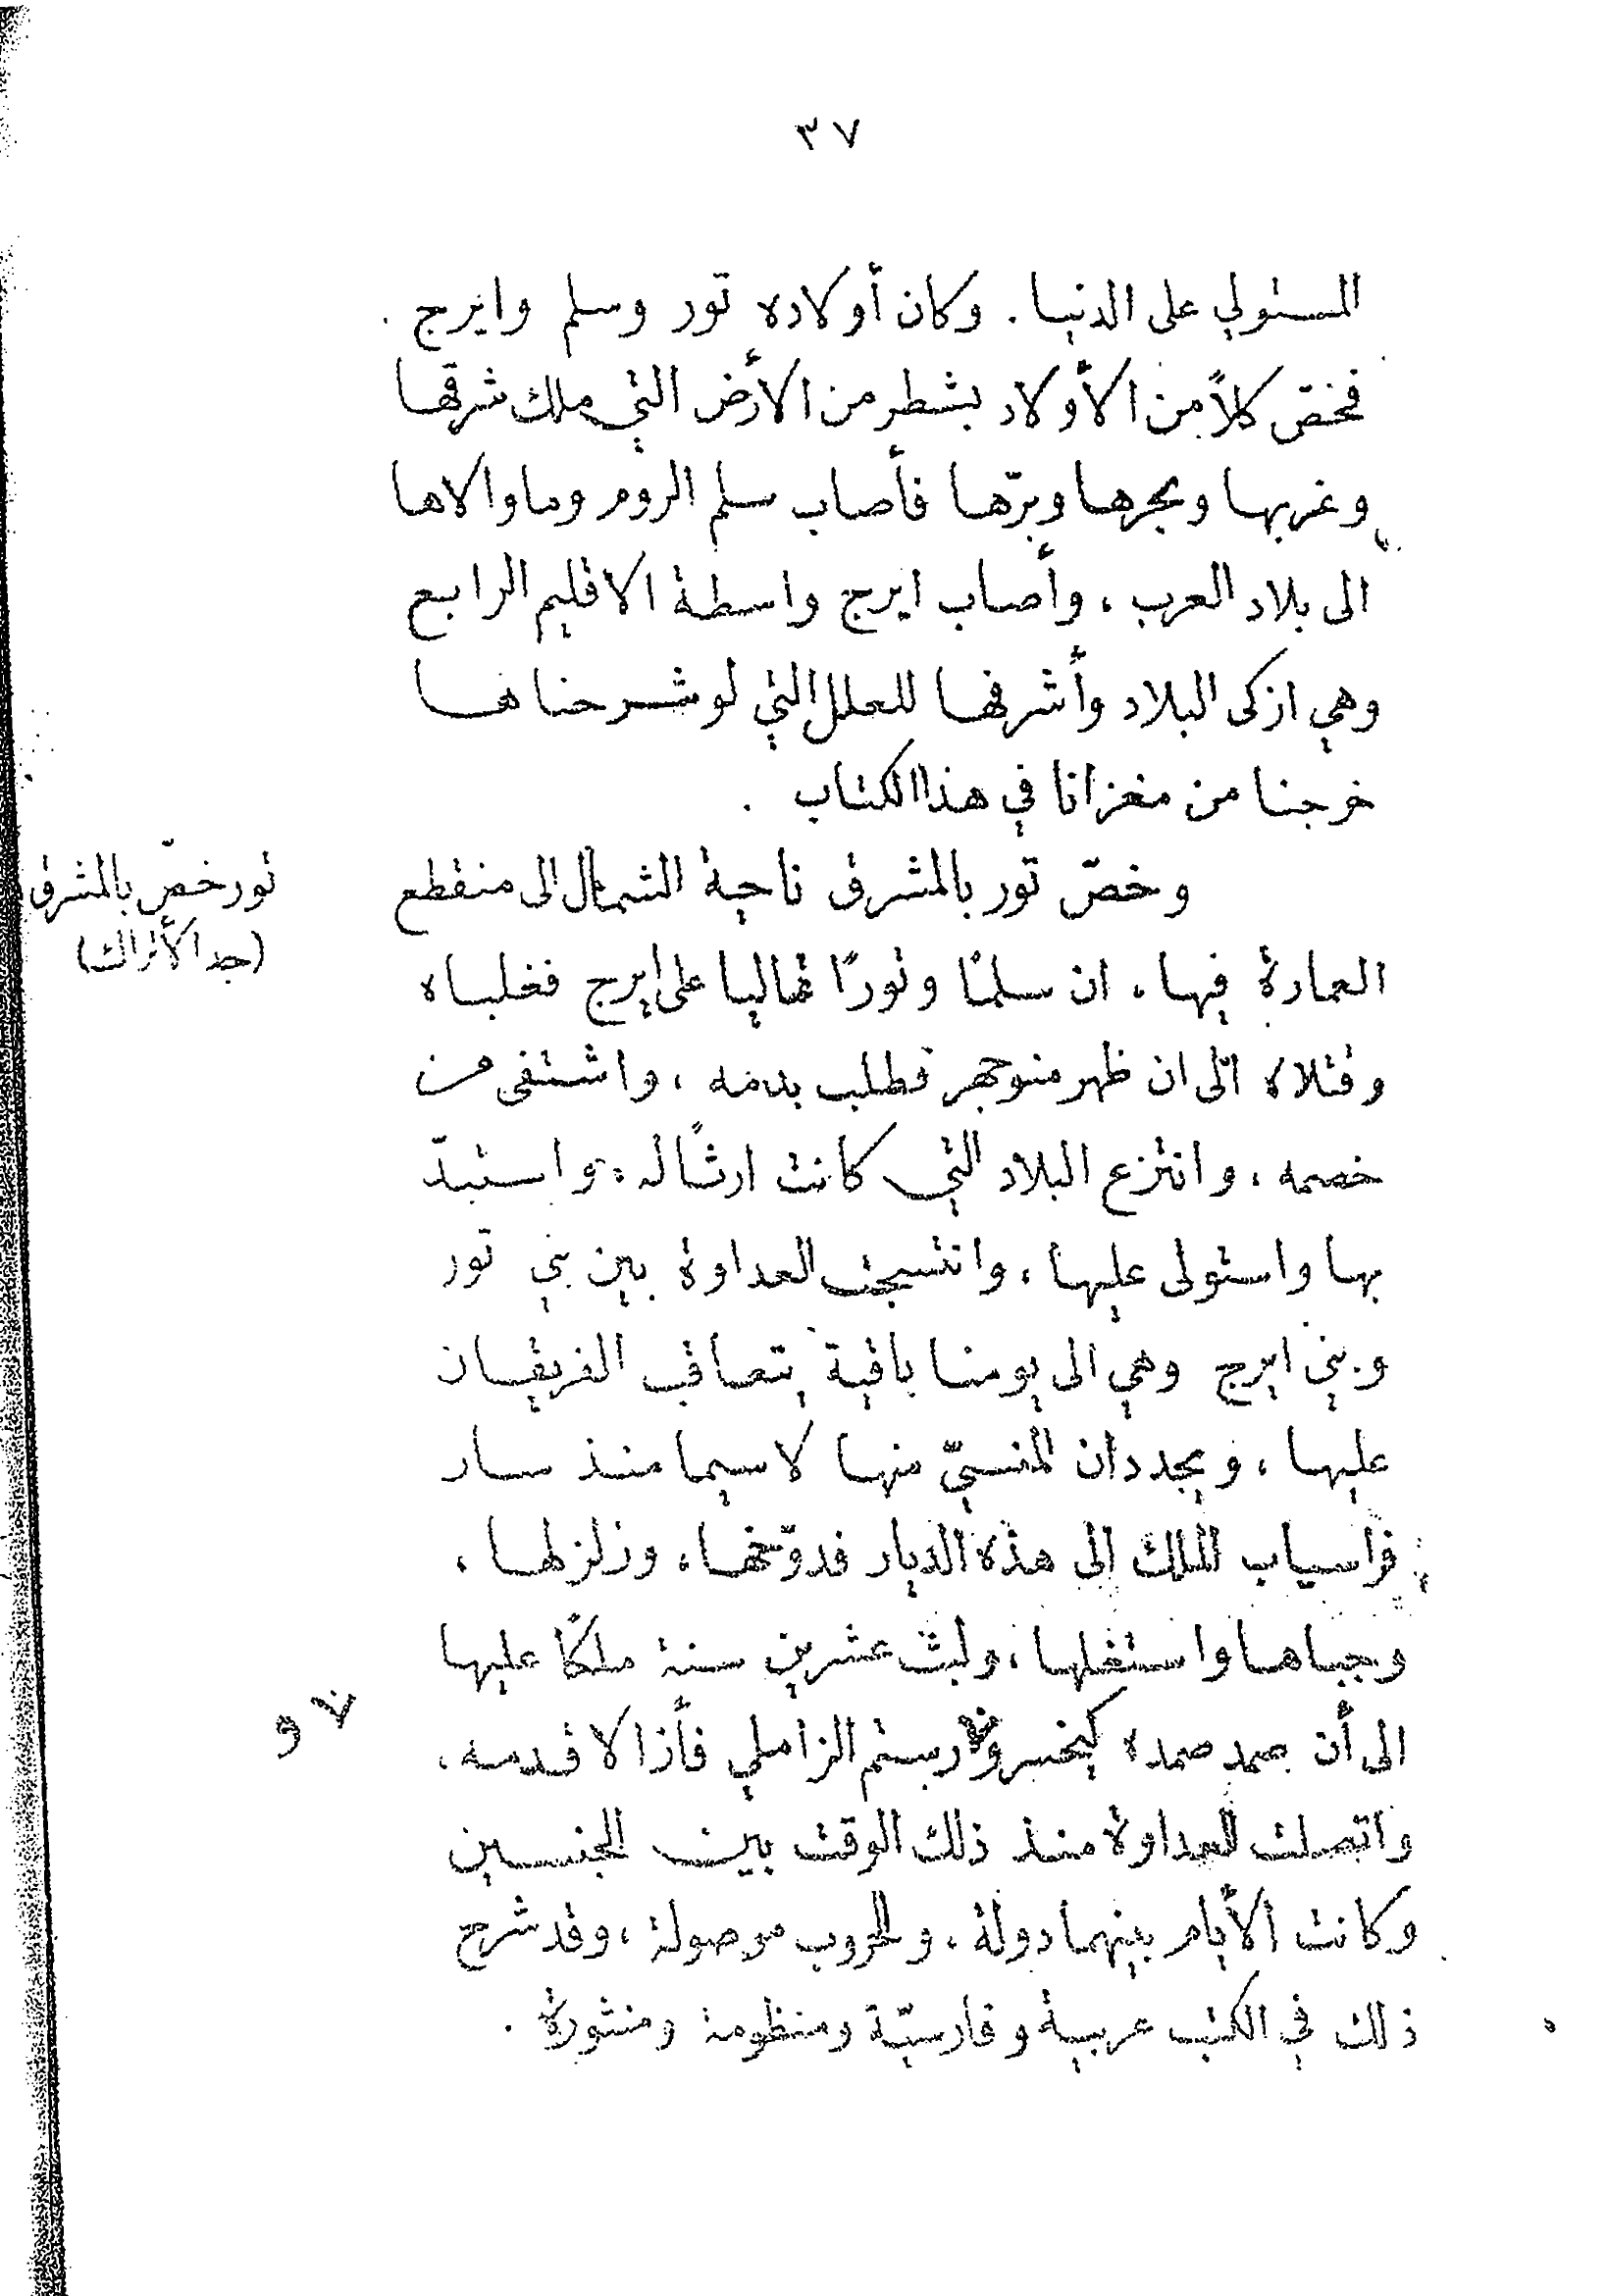 ٣٧
المستولي على الدنيا. وكان أولاده تور وسلم وايرج.
فخصّ كلاً من الأولاد بشطر من الأرض التي ملك شرقها
وغربها وبحرها وبرّها فأصاب سلم الروم وما والاها
الى بلاد العرب، وأصاب ايرج واسطة الاقليم الرابع
وهي ازكى البلاد وأشرفها للعلل التي لو شرحناها
خرجنا من مغزانا في هذا الكتاب.
وخصّ تور بالمشرق ناحية الشمال الى منقطع
تور خصّ بالمشرق
(جد الأتراك)
العمارة فيها، ان سلمًا وتورًا تماليا على ايرج فغلباه
وقتلاه الى ان ظهر منوجهر فطلب بدمه، واشتفى من
خصمه، وانتزع البلاد التي كانت ارثًا له، واستبدّ
بها واستولى عليها، وانتسجت العداوة بين بني تور
وبني ايرج وهي الى يومنا باقية يتعاقب الفريقان
عليها، ويجددان المنسيّ منها لا سيما منذ سار
فراسياب الملك الى هذه الديار فدوّخها، وزلزلها،
وجباها واستغلها، ولبث عشرين سنة ملكًا عليها
الى أن صمد صمده كيخسرو ورستم الزاملي فأزالا قدمه،
و
واتصلت العداوة منذ ذلك الوقت بين الجنسين
وكانت الأيام بينهما دولة، والحروب موصولة، وقد شرح
ذلك في الكتب عربية وفارسيّة ومنظومة ومنثورة.